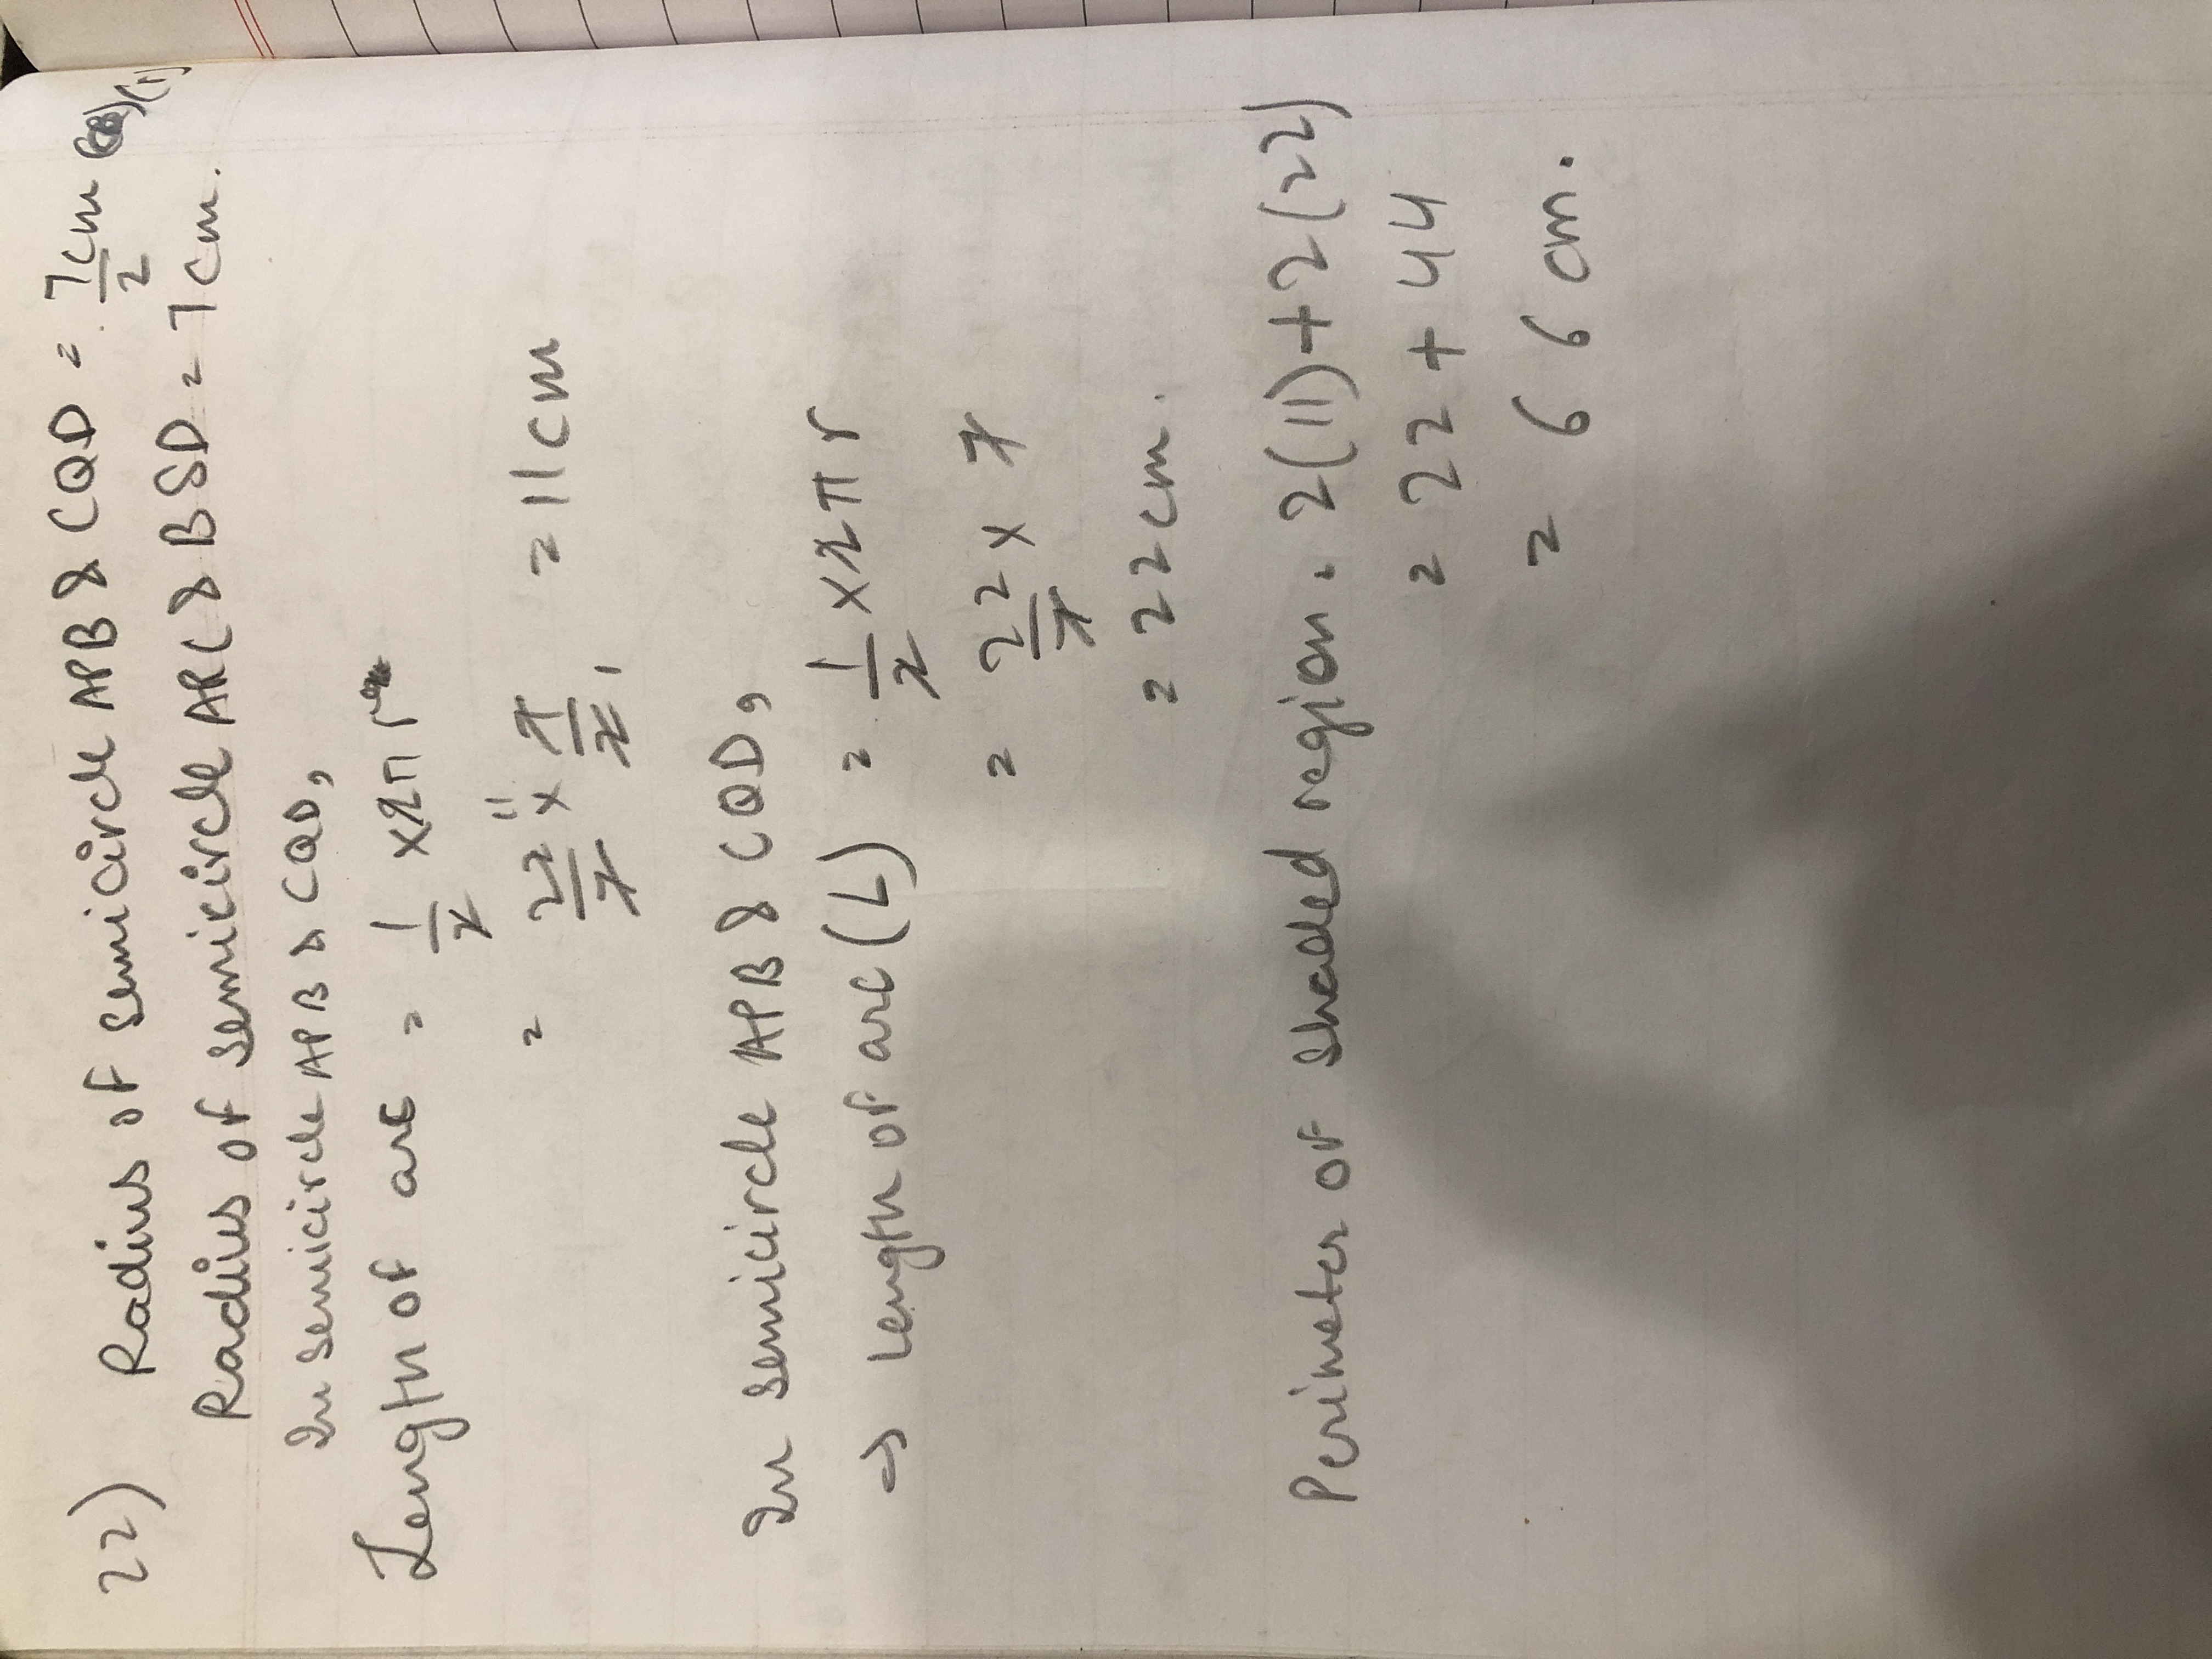 22) Radius of semicircle APB & CQD = 7/2 cm
Radius of semicircle ARC & BSD = 7cm.
In semicircle APB & CQD,
Length of arc = 1/2 × 2π r
= 22/7 × 7/2 = 11cm
In semicircle APB & CQD,
⇒ Length of arc (L) = 1/2 × 2π r
= 22/7 × 7
= 22cm.
Perimeter of shaded region. 2(11) + 2(22)
= 22 + 44
= 66 cm.